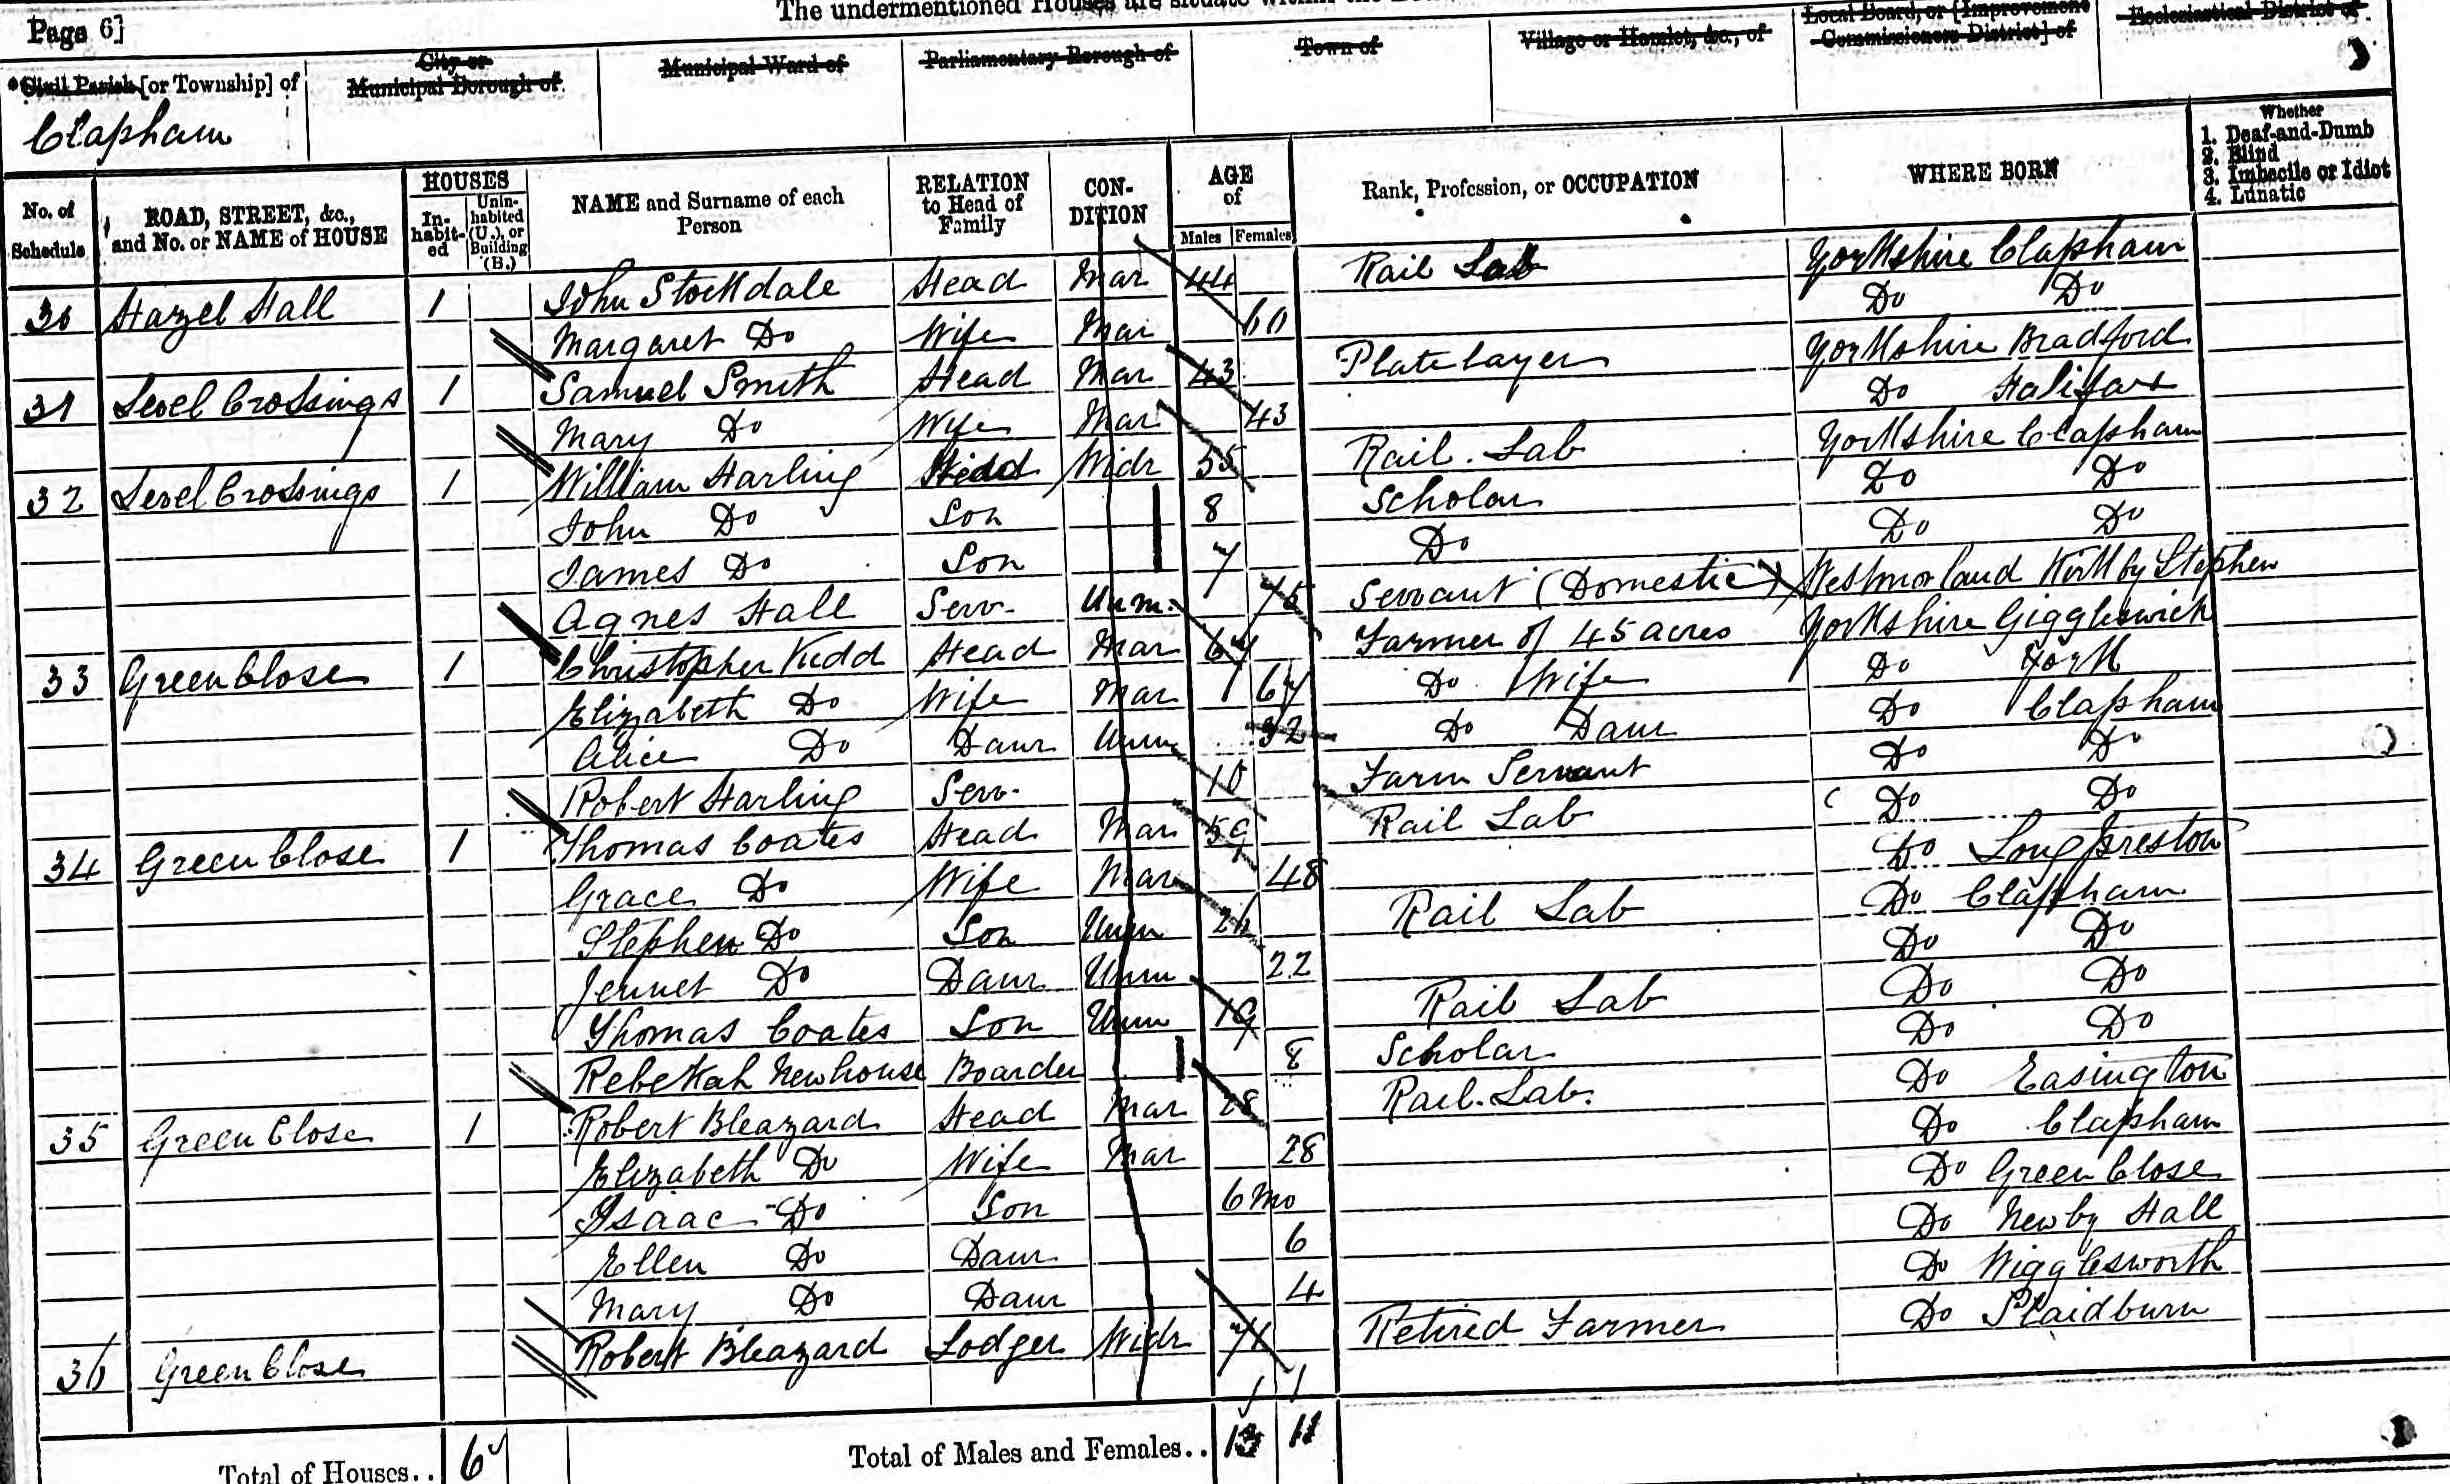 The undermentioned Houses are situate within the
Page 6]
Civil Parish [or Township] of
City or Municipal Borough of
Municipal Ward of
Parliamentary Borough of
Town of
Village or Hamlet, &c., of
Local Board, or [Improvement Commissioners District] of
Ecclesiastical District of
Clapham
No. of Schedule
ROAD, STREET, &c., and No. or NAME of HOUSE
HOUSES
In-habit-ed
Unin-habited (U.), or Building (B.)
NAME and Surname of each Person
RELATION to Head of Family
CON-DITION
AGE of
Males Females
Rank, Profession, or OCCUPATION
WHERE BORN
Whether
1. Deaf-and-Dumb
2. Blind
3. Imbecile or Idiot
4. Lunatic
30 Hazel Hall 1 John Stockdale Head Mar 44 Rail Lab Yorkshire Clapham
Margaret Do Wife Mar 60 Do Do
31 Level Crossings 1 Samuel Smith Head Mar 43 Platelayer Yorkshire Bradford
Mary Do Wife Mar 43 Do Halifax
32 Level Crossings 1 William Harling Head Widr 55 Rail. Lab Yorkshire Clapham
John Do Son 8 Scholar Do Do
James Do Son 7 Do Do Do
Agnes Hall Serv. Unm. 75 Servant (Domestic) Westmorland Kirkby Stephen
33 Green Close 1 Christopher Kidd Head Mar 67 Farmer of 45 acres Yorkshire Giggleswick
Elizabeth Do Wife Mar 67 Do Wife Do York
Alice Do Daur Unm 32 Do Daur Do Clapham
Robert Harling Serv. Farm Servant Do Do
34 Green Close 1 Thomas Coates Head Mar 59 Rail Lab Do Do
Grace Do Wife Mar 48 Do Long Preston
Stephen Do Son Unm Rail Lab Do Clapham
Jennet Do Daur Unm 22 Do Do
Thomas Coates Son Unm 19 Rail Lab Do Do
Rebekah Newhouse Boarder 8 Scholar Do Do
35 Green Close 1 Robert Bleazard Head Mar 28 Rail. Lab. Do Easington
Elizabeth Do Wife Mar 28 Do Clapham
Isaac Do Son 6 mo Do Green Close
Ellen Do Daur 6 Do Newby Hall
Mary Do Daur 4 Do Wigglesworth
36 Green Close Robert Bleazard Lodger Widr 71 Retired Farmer Do Slaidburn
Total of Houses.. 6 Total of Males and Females.. 13 11